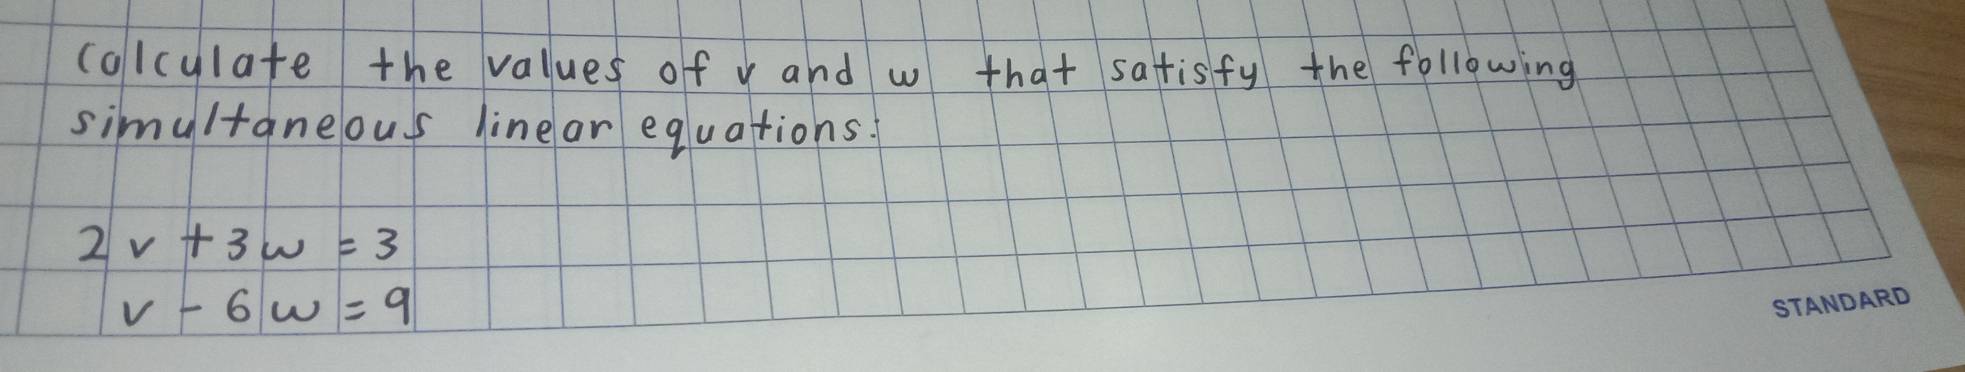 Calculate the values of v and w that satisfy the following
simultaneous linear equations:
2v + 3w = 3
v - 6w = 9
STANDARD